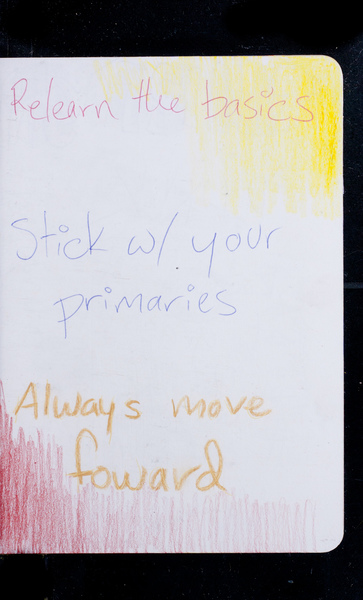 Relearn the basics
Stick w/ your
primaries
Always move
foward